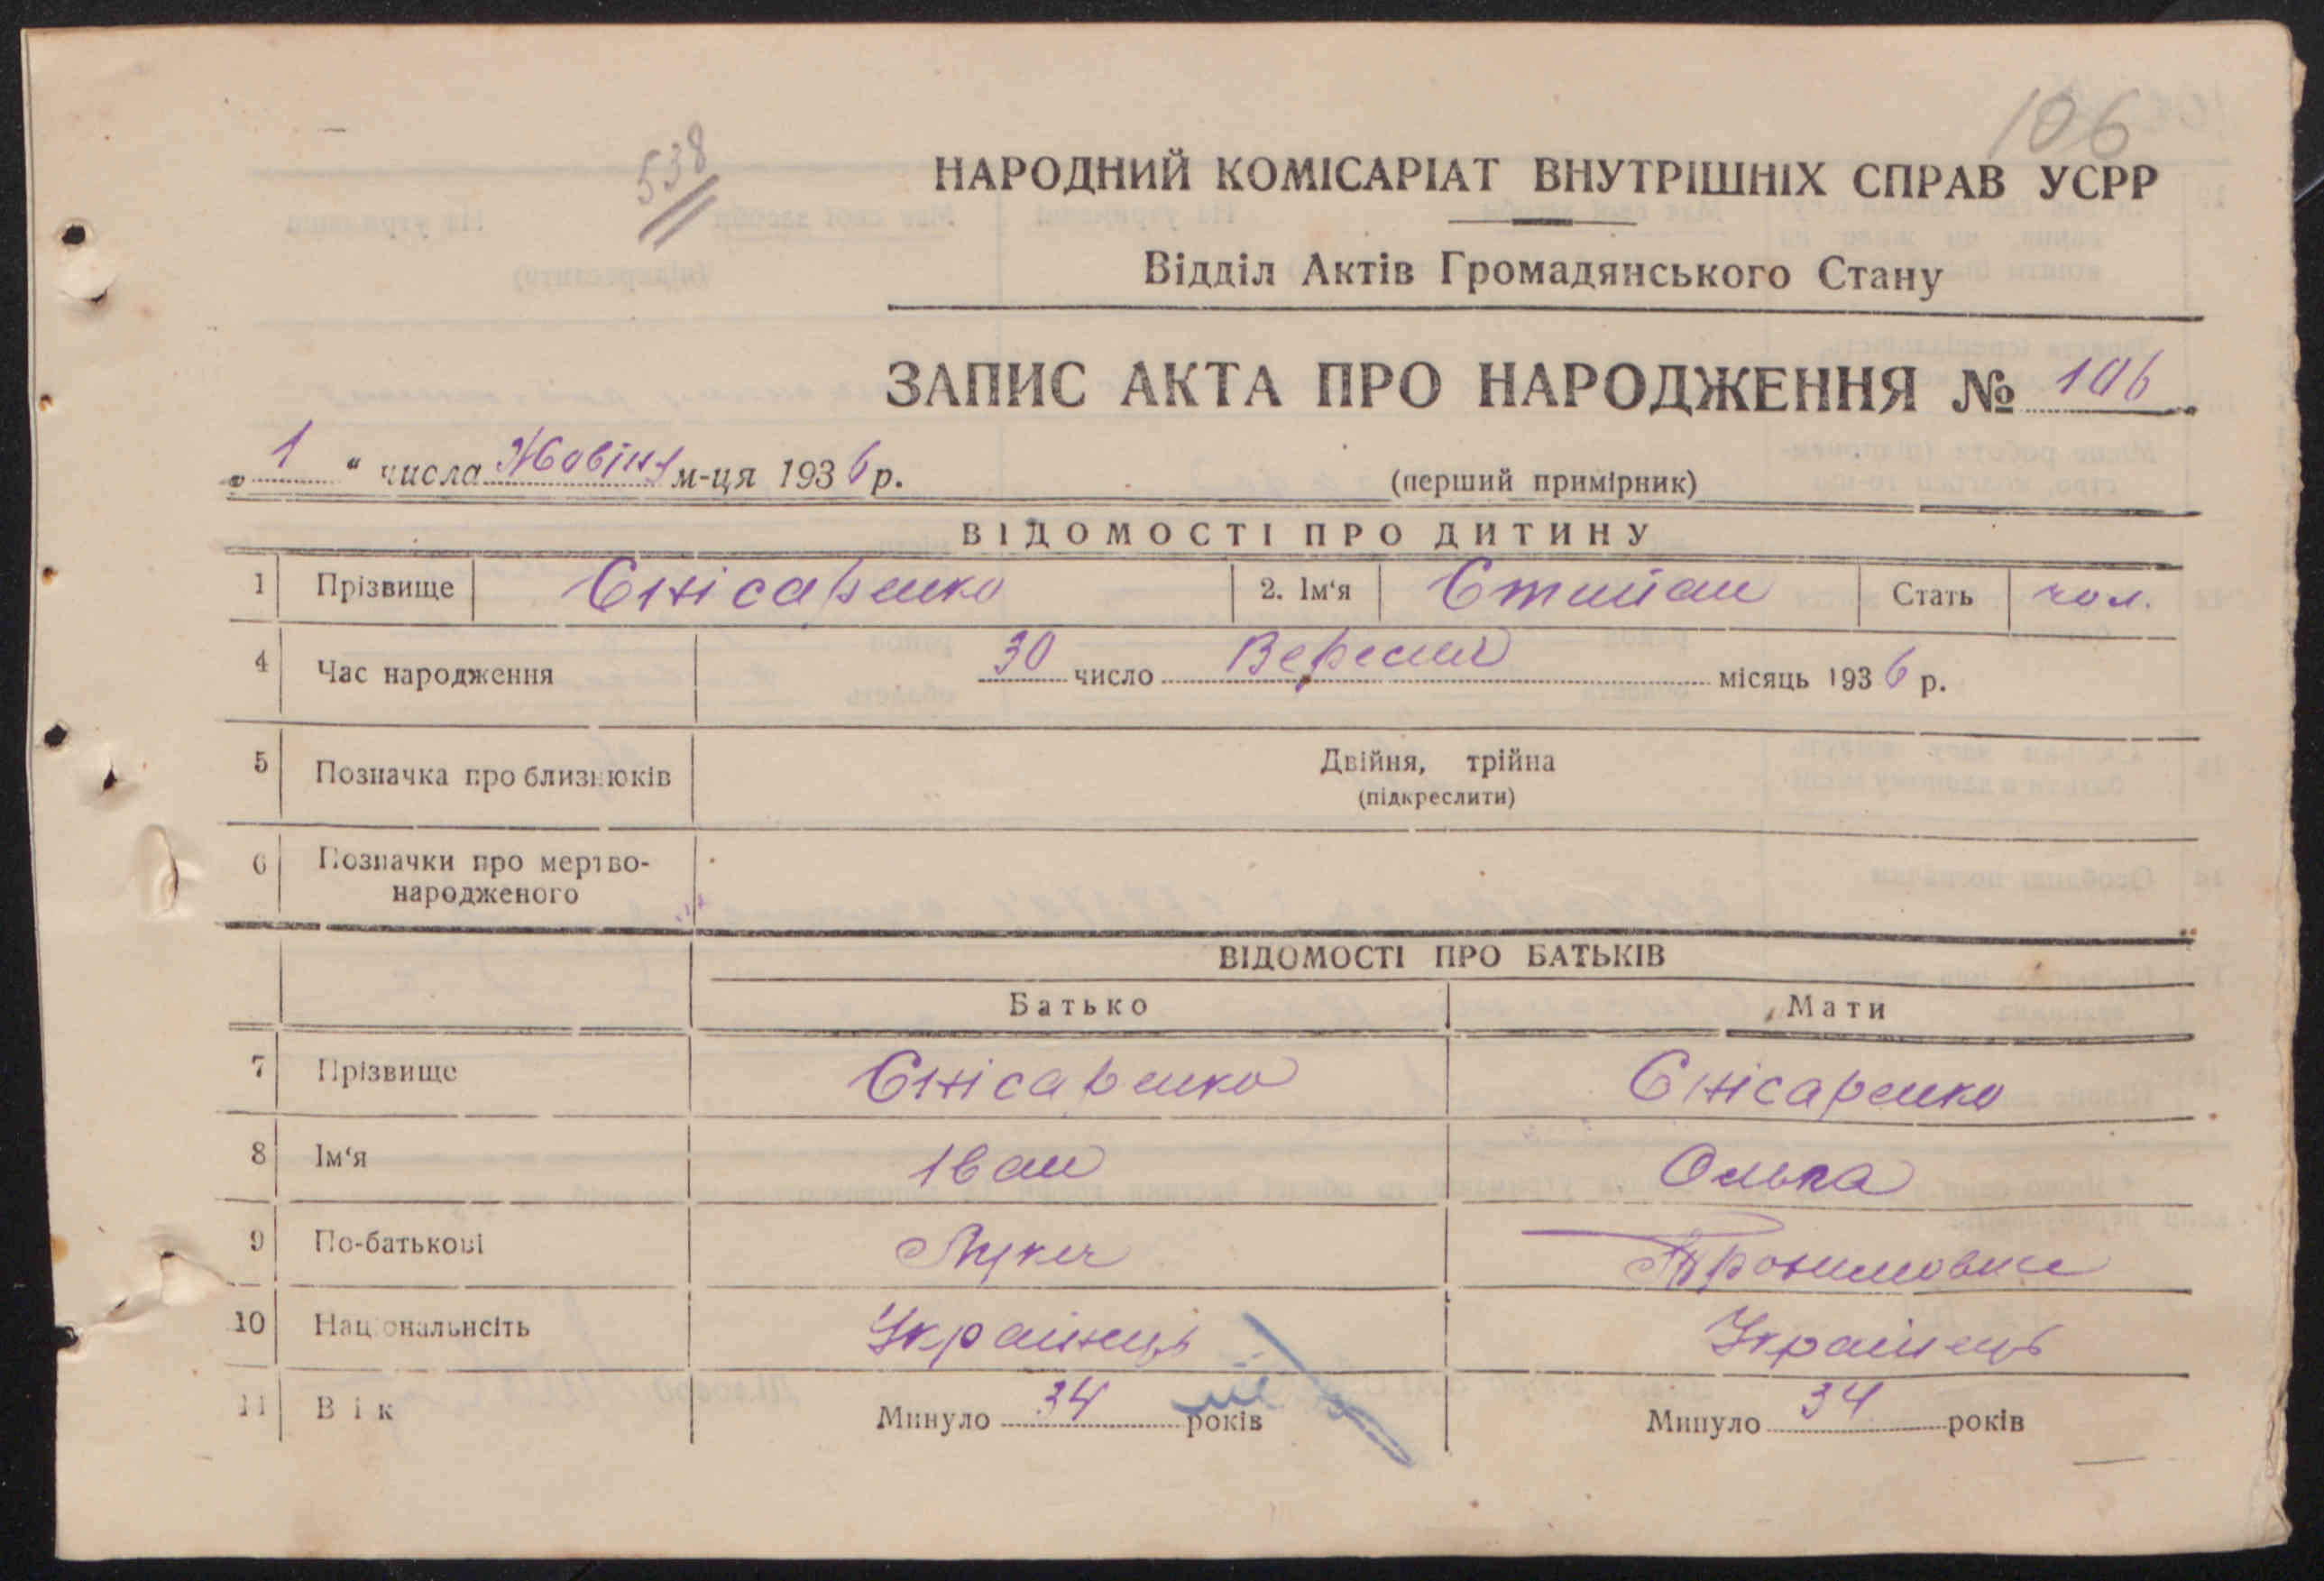 106
538
НАРОДНИЙ КОМІСАРІАТ ВНУТРІШНІХ СПРАВ УСРР
Відділ Актів Громадянського Стану
ЗАПИС АКТА ПРО НАРОДЖЕННЯ № 106
„ 1 “ числа м-ця 1936 р. (перший примірник)
ВІДОМОСТІ ПРО ДИТИНУ
1 Прізвище Єнісаренко 2. Ім‘я Стать чол.
4 Час народження 30 число Вересня місяць 1936 р.
5 Позначка про близнюків Двійня, трійна
(підкреслити)
6 Позначки про мертво-
народженого
ВІДОМОСТІ ПРО БАТЬКІВ
Батько Мати
7 Прізвище Єнісаренко Єнісаренко
8 Ім‘я Іван Олька
9 По-батькові
10 Національнсіть Українець Українець
11 Вік Минуло 34 років Минуло 34 років